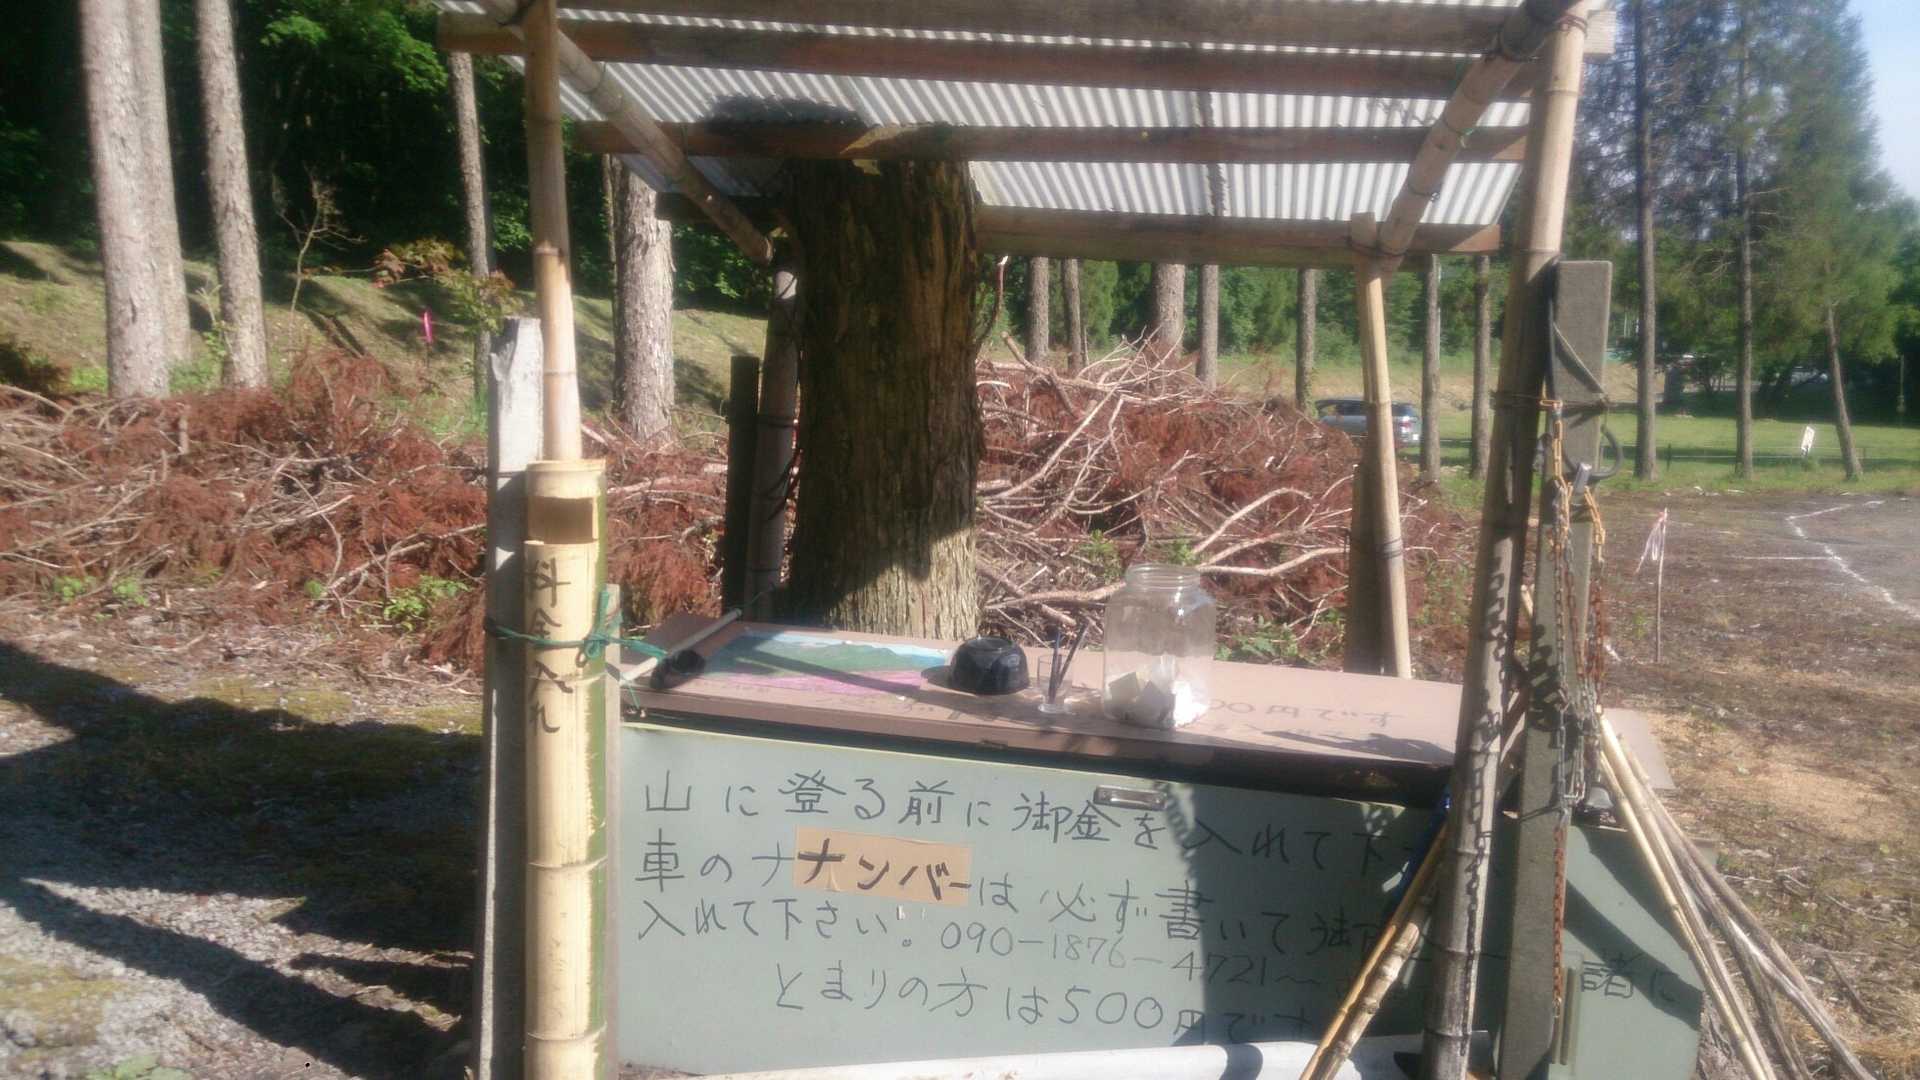 料金入れ
00円です
山に登る前に御金を入れて下
車のナナンバーは必ず書いて御
諸に
入れて下さい。090-1876-4721〜
とまりの方は500円です